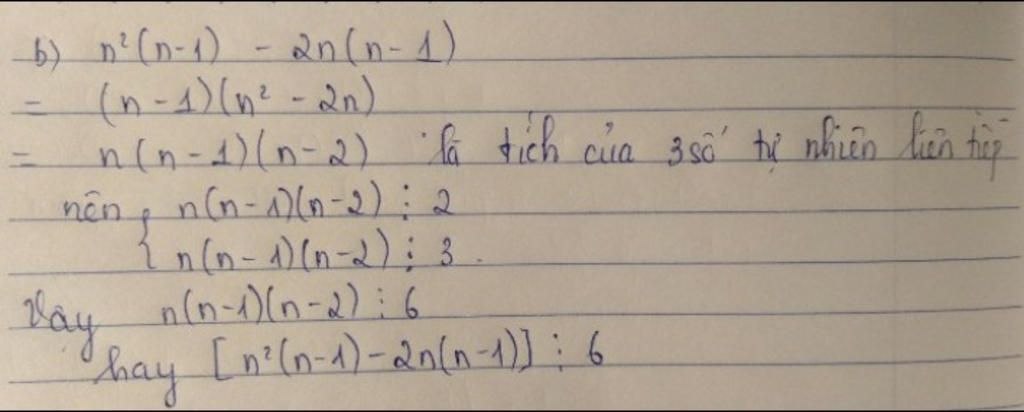 b) n²(n-1) - 2n(n-1)
= (n-1)(n² - 2n)
= n(n-1)(n-2) là tích của 3 số tự nhiên liên tiếp
nên { n(n-1)(n-2) ⋮ 2
n(n-1)(n-2) ⋮ 3.
Vậy n(n-1)(n-2) ⋮ 6
hay [n²(n-1) - 2n(n-1)] ⋮ 6